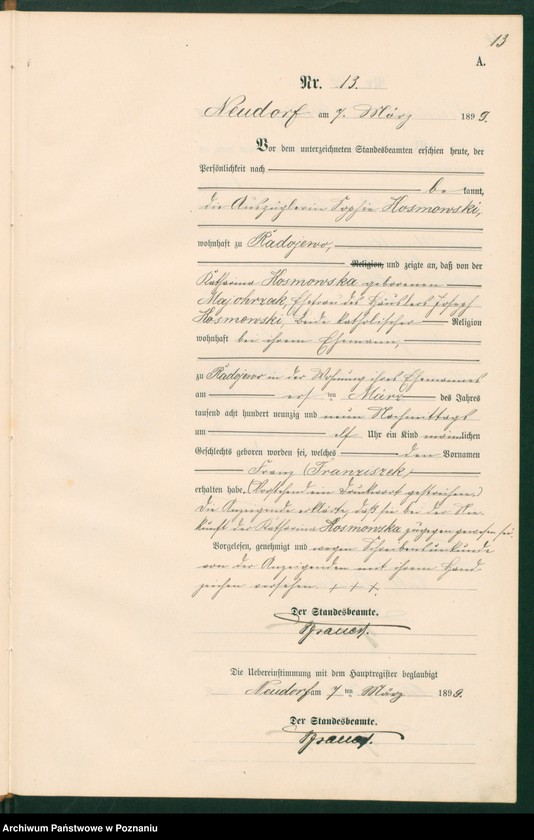 13
A.
Nr. 13.
Neudorf am 7. März 1899.
Vor dem unterzeichneten Standesbeamten erschien heute, der
Persönlichkeit nach
be kannt,
die Auszüglerin Sophie Kosmowski,
wohnhaft zu Radojewo,
Religion, und zeigte an, daß von der
Katharina Kosmowska geborenen
Majchrzak, Ehefrau des Häuslers Joseph
Kosmowski, beide katholischer Religion
wohnhaft bei ihrem Ehemanne,
zu Radojewo in der Wohnung ihres Ehemannes
am ersten März des Jahres
tausend acht hundert neunzig und neun Nachmittags
um elf Uhr ein Kind männlichen
Geschlechts geboren worden sei, welches den Vornamen
Franz (Franziszek)
erhalten habe. (Vorstehend ein Druckwort gestrichen.)
Die Anzeigende erklärte, daß sie bei der Nie-
kunft der Katharina Kosmowska zugegen gewesen sei.
Vorgelesen, genehmigt und wegen Schreibensunkunde
von der Anzeigenden mit ihrem Hand-
zeichen versehen. + + +
Der Standesbeamte.
Die Uebereinstimmung mit dem Hauptregister beglaubigt
Neudorf am 7ten März 1899.
Der Standesbeamte.
Archiwum Państwowe w Poznaniu